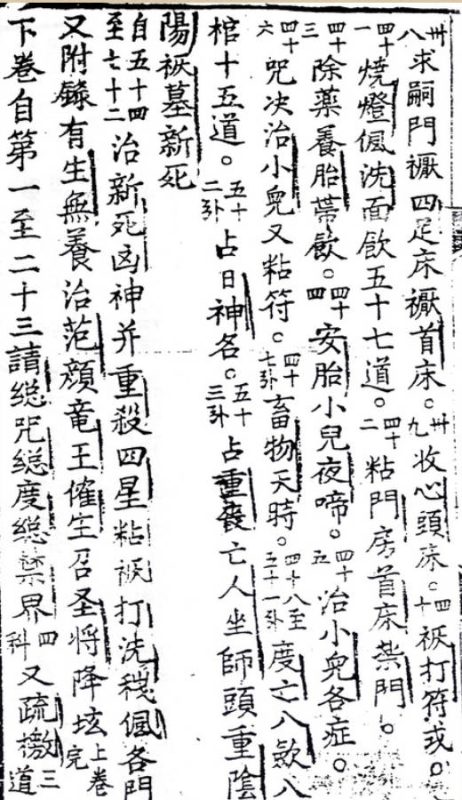 卅八求嗣門禳四足床禳首床。卅九收心頭床。四十祅打符或。
四十一燒燈偑洗面飲五十七道。四十二粘門房首床禁門。
四十三除藥養胎蒂飲。四十四安胎小兒夜啼。四十五治小兒各症。
四十六咒决治小兒又粘符。四十七卦畜物天時。四十八至五十一卦度亡八款八
棺十五道。五十二卦占日神各。五十三卦占重喪亡人坐師頭重陰
陽祅墓新死
自五十四至七十二治新死凶神并重殺四星粘祅打洗穢偑各門
又附錄有生無養治范顔竜王傕生召圣將降坛上卷完
下卷自第一至二十三請総咒総度総禁界四科又疏檄三道